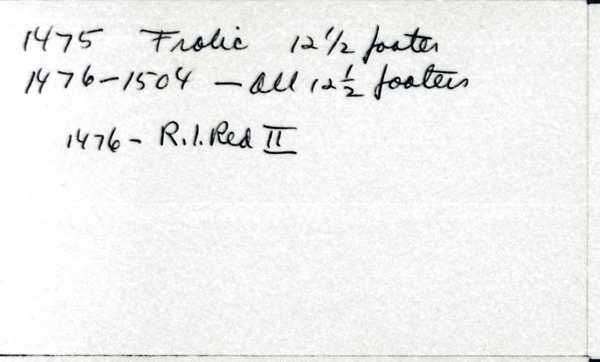 1475 Frolic 12 1/2 footer
1476-1504 - All 12 1/2 footers
1476 - R.I. Red II